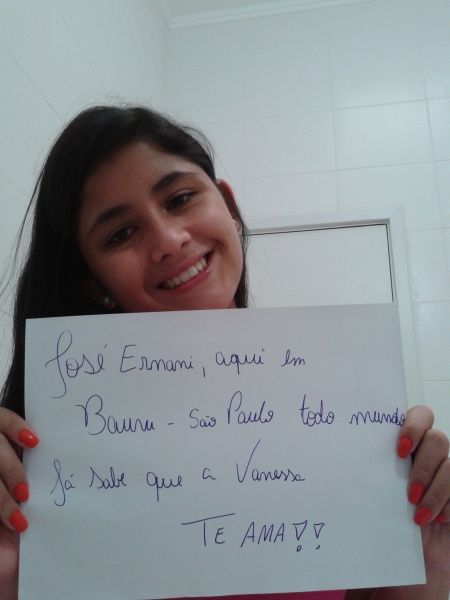 José Ernani, aqui em
Bauru - São Paulo todo mundo
Já sabe que a Vanessa
TE AMA!!